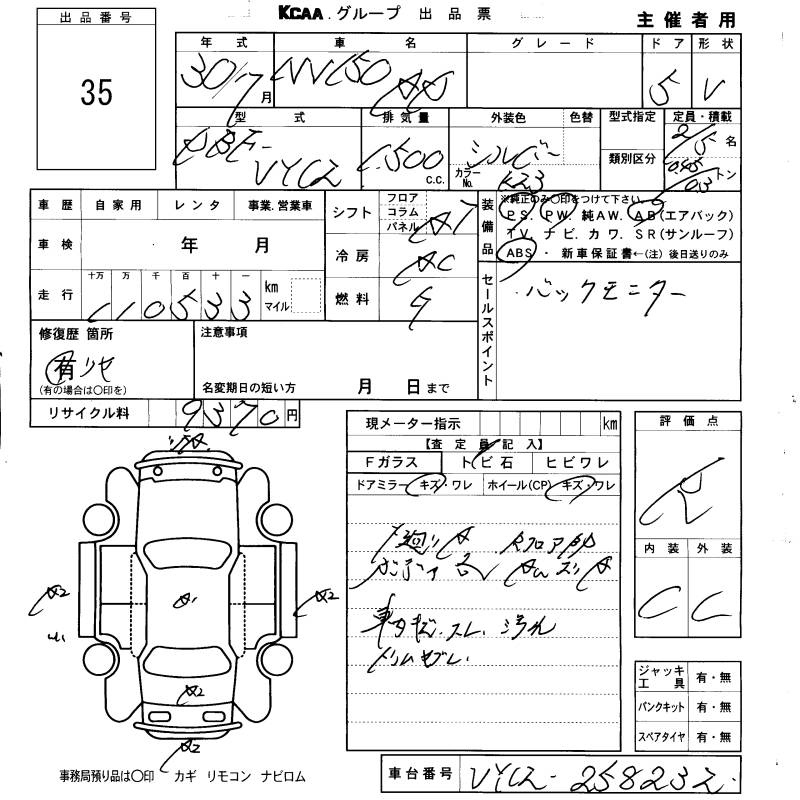 KCAA.グループ 出品票
主催者用
出品番号
35
年式 車名 グレード ドア 形状
30/7 月 NV150 AD 5 V
型式 排気量 外装色 色替 型式指定 定員・積載
DBF-VY12 1500 c.c. シルバー 類別区分 2/5 名
カラーNo. K23 0.45/0.3 トン
車歴 自家用 レンタ 事業.営業車
車検 年 月
走行 十万 万 千 百 十 一 km マイル
110533
シフト フロア コラム パネル AT
冷房 AC
燃料 G
装備品 ※純正のみ〇印をつけて下さい。
PS. PW. 純AW. AB(エアバック)
TV. ナビ. カワ. SR(サンルーフ)
ABS ・ 新車保証書←(注) 後日送りのみ
セールスポイント
バックモニター
修復歴 箇所
有 リセ
(有の場合は〇印を)
注意事項
名変期日の短い方 月 日まで
リサイクル料 9370円
現メーター指示 km
【査定員記入】
Fガラス トビ石 ヒビワレ
ドアミラー キズ・ワレ ホイール(CP) キズ・ワレ
下廻りサ
車内キズ.スレ.汚れ
評価点
R
内装 外装
C C
A2 A1 A2
A2
A2
ジャッキ工具 有・無
パンクキット 有・無
スペアタイヤ 有・無
事務局預り品は〇印 カギ リモコン ナビロム
車台番号 VY12-258232